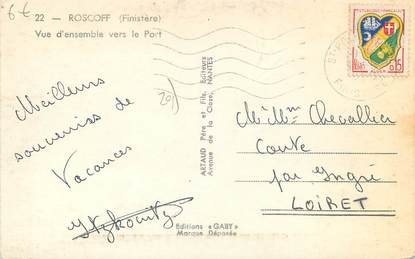 6€
22 - ROSCOFF (Finistère)
Vue d'ensemble vers le Port
Meilleurs
souvenirs de
Vacances
ARTAUD Père et Fils, Éditeurs
Avenue de la Close, NANTES
Editions «GABY»
Marque Déposée
REPUBLIQUE FRANÇAISE
0,15
ALGER
M. Mme Chevallier
par Ingré
LOIRET